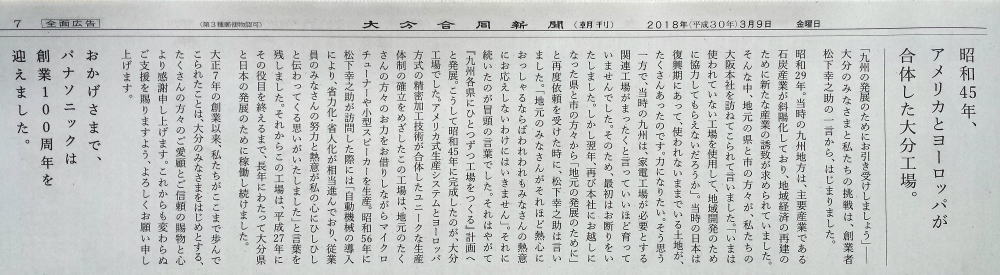 7 全面広告 (第3種郵便物認可) 大分合同新聞 (朝刊) 2018年(平成30年)3月9日 金曜日
昭和45年、
アメリカとヨーロッパが
合体した大分工場。
「九州の発展のためにお引き受けしましょう」――
大分のみなさまと私たちの挑戦は、創業者
松下幸之助の一言から、はじまりました。
昭和29年。当時の九州地方は、主要産業である
石炭産業が斜陽化しており、地域経済の再建の
ために新たな産業の誘致が求められていました。
そんな中、地元の県と市の方々が、私たちの
大阪本社を訪ねてこられて言いました。「いまは
使われていない工場を使用して、地域開発のため
に協力してもらえないだろうか」。当時の日本は
復興期にあって、使われないままでいる土地が、
たくさんあったのです。力になりたい。そう思う
一方で、当時の九州は、家電工場が必要とする
関連工場がまったくと言っていいほど育って
いませんでした。そのため、最初はお断りをい
たしました。しかし翌年、再び本社にお越しに
なった県と市の方々から「地元の発展のために」
と再度依頼を受けた時に、松下幸之助は言い
ました。「地元のみなさんがそれほど熱心に
おっしゃるならばわれわれもみなさんの熱意
にお応えしないわけにはいきません」。それに
続いたのが冒頭の言葉でした。それはやがて
『九州各県にひとつずつ工場をつくる』計画へ
と発展。こうして昭和45年に完成したのが、大分
工場でした。アメリカ式生産システムとヨーロッパ
方式の精密加工技術が合体したユニークな生産
体制の確立をめざしたこの工場は、地元のたく
さんの方々のお力をお借りしながらマイクロ
チューナーや小型スピーカーを生産。昭和56年に
松下幸之助が訪問した際には「自動機械の導入
により、省力化・省人化が相当進んでおり、従業
員のみなさんの努力と熱意が私の心にひしひし
と伝わってくる思いがいたしました」と言葉を
残しました。それからこの工場は、平成27年に
その役目を終えるまで、長年にわたって大分県
と日本の発展のために稼働し続けました。
大正7年の創業以来、私たちがここまで歩んで
こられたことは、大分のみなさまをはじめとする、
たくさんの方々のご愛顧とご信頼の賜物と心
より感謝申し上げます。これからも変わらぬ
ご支援を賜りますよう、よろしくお願い申し
上げます。
おかげさまで、
パナソニックは
創業100周年を
迎えました。